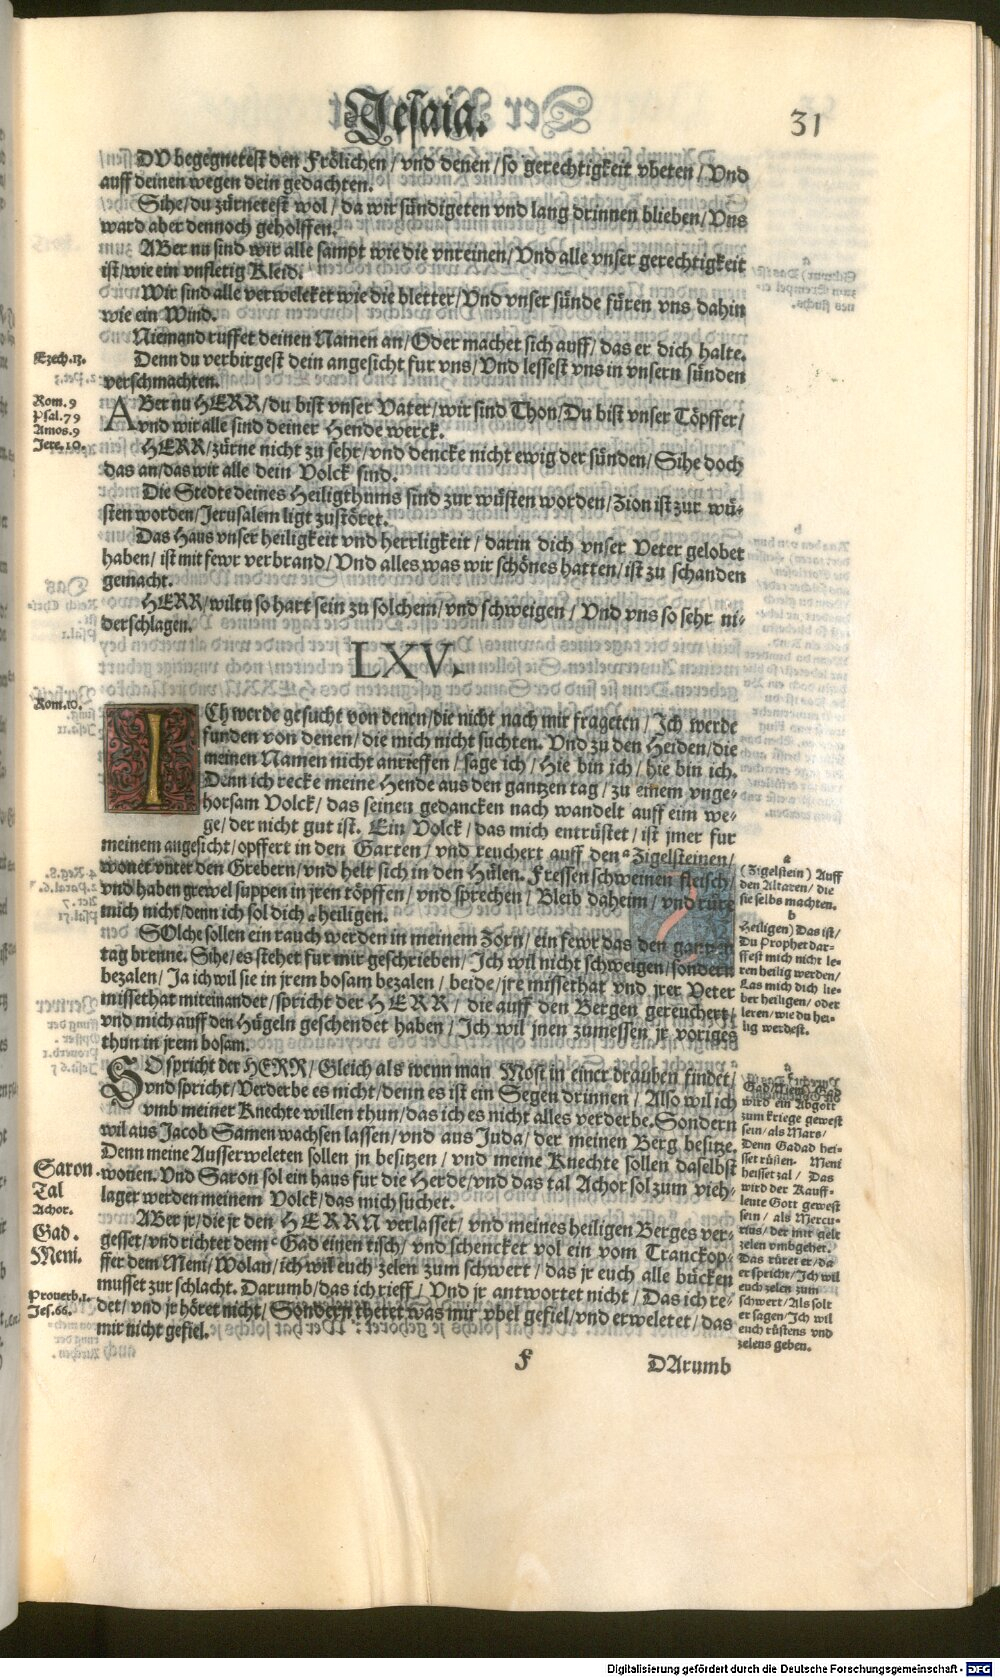 Jesaia.
31
DV begegnetest den Frölichen / vnd denen / so gerechtigkeit vbeten / Vnd
auff deinen wegen dein gedachten.
Sihe / du zürnetest wol / da wir sündigeten vnd lang drinnen blieben / Vns
ward aber dennoch geholffen.
ABer nu sind wir alle sampt wie die vnreinen / Vnd alle vnser gerechtigkeit
ist / wie ein vnfletig Kleid.
Wir sind alle verwelcket wie die bletter / Vnd vnser sünde füren vns dahin
wie ein Wind.
Niemand ruffet deinen Namen an / Oder machet sich auff / das er dich halte.
Denn du verbirgest dein angesicht fur vns / Vnd lessest vns in vnsern sünden
verschmachten.
Ezech. 13.
ABer nu HERR / du bist vnser Vater / wir sind Thon / Du bist vnser Töpffer /
vnd wir alle sind deiner Hende werck.
Rom. 9
Psal. 79
Amos. 9
Jere. 10.
HERR / zürne nicht zu sehr / vnd dencke nicht ewig der sünden / Sihe doch
das an / das wir alle dein Volck sind.
Die Stedte deines Heiligthums sind zur wüsten worden / Zion ist zur wü-
sten worden / Jerusalem ligt zustöret.
Das Haus vnser heiligkeit vnd herrligkeit / darin dich vnser Veter gelobet
haben / ist mit fewr verbrand / Vnd alles was wir schönes hatten / ist zu schanden
gemacht.
HERR / wiltu so hart sein zu solchem / vnd schweigen / Vnd vns so sehr ni-
derschlagen.
LXV.
Rom. 10.
ICh werde gesucht von denen / die nicht nach mir frageten / Ich werde
funden von denen / die mich nicht suchten. Vnd zu den Heiden / die
meinen Namen nicht anrieffen / sage ich / Hie bin ich / hie bin ich.
Denn ich recke meine Hende aus den gantzen tag / zu einem vnge-
horsam Volck / das seinen gedancken nach wandelt auff eim we-
ge / der nicht gut ist. Ein Volck / das mich entrüstet / ist jmer fur
meinem angesicht / opffert in den Garten / vnd reuchert auff den a Zigelsteinen /
wonet vnter den Grebern / vnd helt sich in den Hülen. Fressen schweinen fleisch /
vnd haben grewel suppen in jren töpffen / vnd sprechen / Bleib daheim / vnd rüre
mich nicht / denn ich sol dich heiligen.
SOlche sollen ein rauch werden in meinem Zorn / ein fewr das den gantzen
tag brenne. Sihe / es stehet fur mir geschrieben / Ich wil nicht schweigen / sondern
bezalen / Ja ich wil sie in jrem bosam bezalen / beide / jre missethat vnd jrer Veter
missethat miteinander / spricht der HERR / die auff den Bergen gereuchert /
vnd mich auff den Hügeln geschendet haben / Ich wil jnen zumessen jr voriges
thun in jrem bosam.
a
(Zigelstein) Auff
den Altaren / die
sie selbs machten.
b
Heiligen) Das ist /
Du Prophet dar-
ffest mich nicht le-
ren heilig werden /
Las mich dich lie-
ber heiligen / oder
leren / wie du hei-
lig werdest.
SO spricht der HERR / Gleich als wenn man Most in einer drauben findet /
vnd spricht / Verderbe es nicht / denn es ist ein Segen drinnen / Also wil ich
vmb meiner Knechte willen thun / das ich es nicht alles verderbe. Sondern
wil aus Jacob Samen wachsen lassen / vnd aus Juda / der meinen Berg besitze.
Denn meine Ausserweleten sollen jn besitzen / vnd meine Knechte sollen daselbst
wonen. Vnd Saron sol ein haus fur die Herde / vnd das tal Achor sol zum vieh-
lager werden meinem Volck / das mich suchet.
Saron.
Tal
Achor.
ABer jr / die jr den HERRN verlasset / vnd meines heiligen Berges ver-
gesset / vnd richtet dem c Gad einen tisch / vnd schencket vol ein vom Tranckop-
ffer dem Meni / Wolan / ich wil euch zelen zum schwert / das jr euch alle bücken
musset zur schlacht. Darumb / das ich rieff / Vnd jr antwortet nicht / Das ich re-
det / vnd jr höret nicht / Sondern thetet was mir vbel gefiel / vnd erweletet / das
mir nicht gefiel.
Gad.
Meni.
Prouerb. 1.
Jes. 66.
wird ein Abgott
zum kriege gewest
sein / als Mars /
Denn Gadad hei-
sset rüsten. Meni
heisset zal / Das
wird der Kauff-
leute Gott gewest
sein / als Mercu-
rius / der mit gelt
zelen vmbgehet.
Das rüret er / da
er spricht / Ich wil
euch zelen zum
schwert / Als solt
er sagen / Ich wil
euch rüstens vnd
zelens geben.
F
DArumb
Digitalisierung gefördert durch die Deutsche Forschungsgemeinschaft - DFG